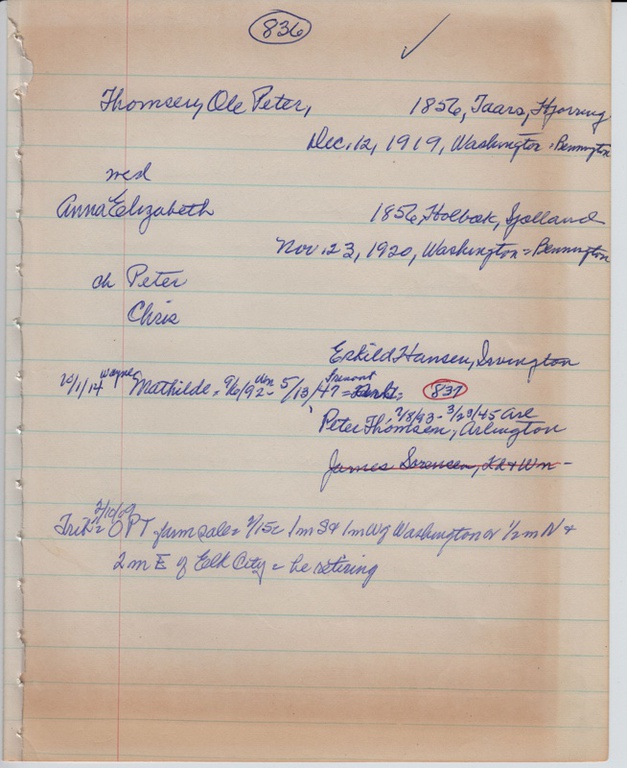 836
Thomsen, Ole Peter, 1856, Taars, Hjorring
Dec. 12, 1919, Washington = Bennington
wed
Anna Elizabeth 1856, Holbæk, Sjolland
Nov. 23, 1920, Washington = Bennington
ch Peter
Chris
Eskild Hansen, Irvington
10/1/14 Wayne Mathilde = 9/6/92 - 5/13/47 = Fremont 837
Peter Thomsen, 2/8/93 - 3/29/45 Arl
Arlington
James Sorensen,
Trib = 2/10/09 OPT farm sale = 2/15 = 1 m S & 1 m W of Washington or 1/2 m N &
2 m E of Elk City = he retiring